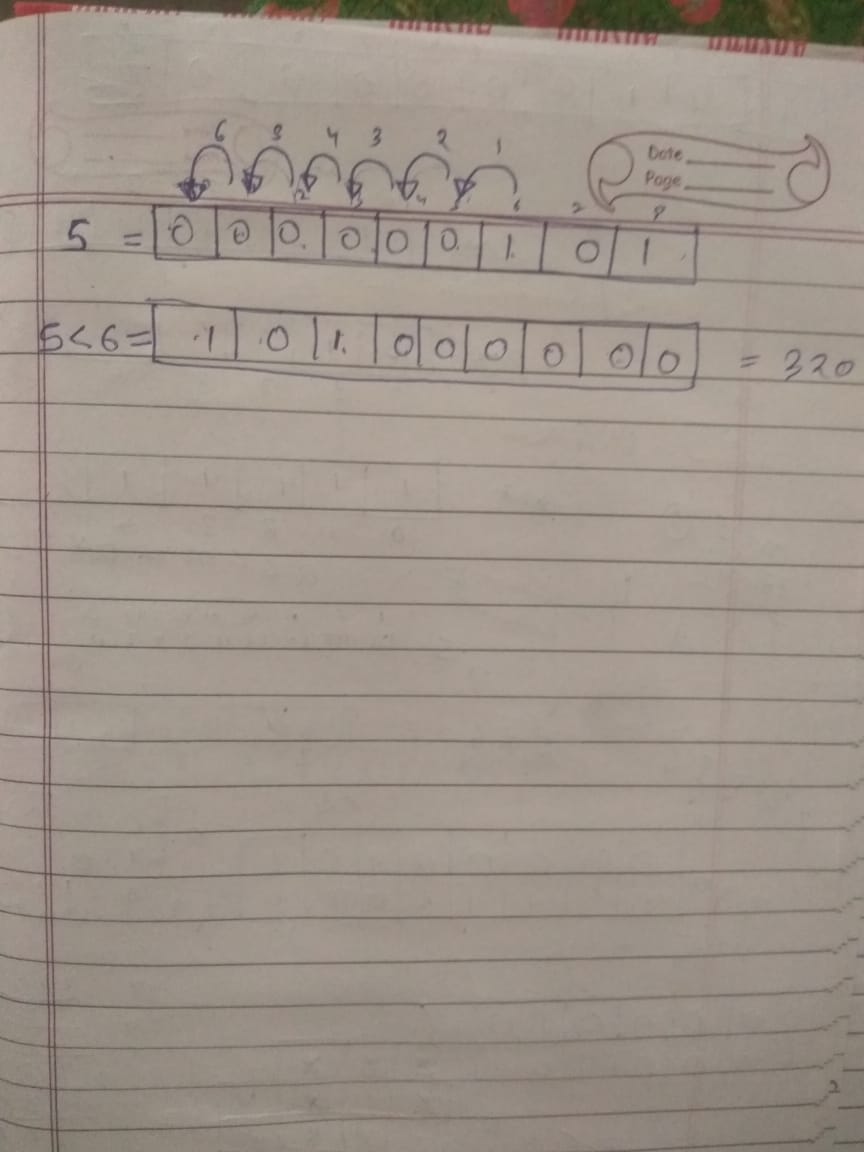 Date
Page
6 5 4 3 2 1
5 = 0 0 0 0 0 0 1 0 1
5<6= 1 0 1 0 0 0 0 0 0 = 320